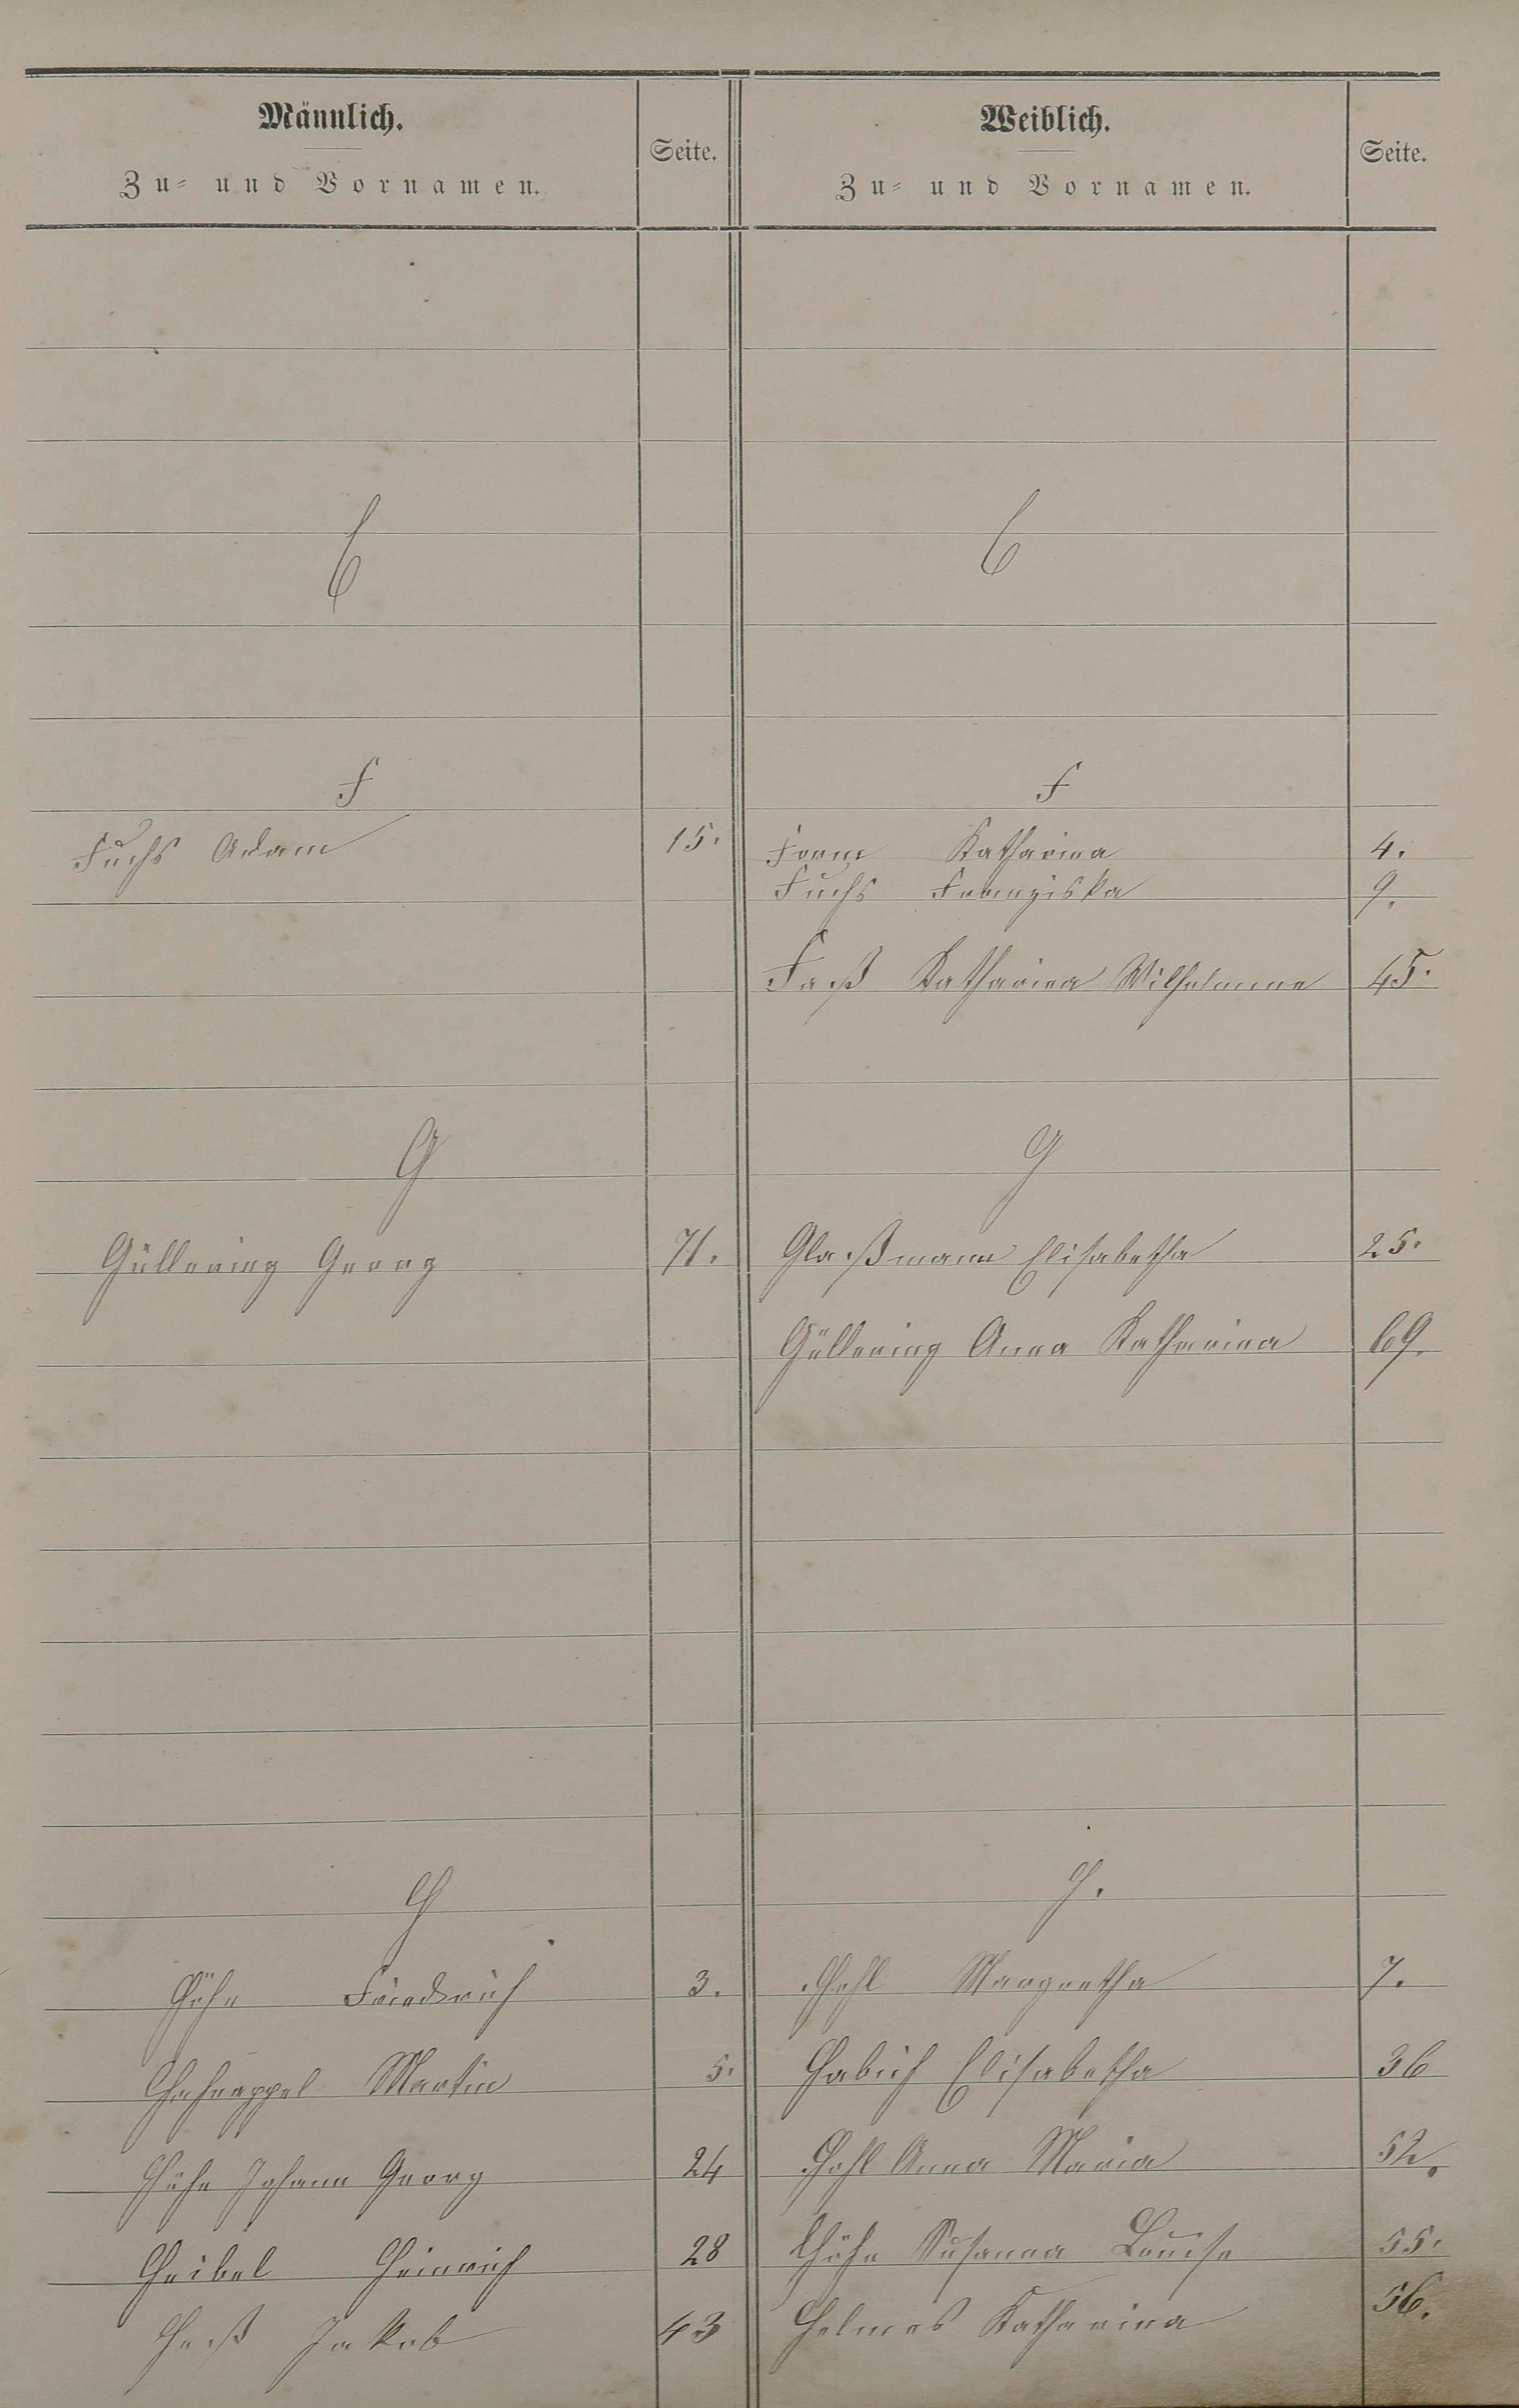 Männlich.
Zu- und Vornamen.
Seite.
Weiblich.
Zu- und Vornamen.
Seite.
E
E
F
F
Fuchs Adam 15.
Form Katharina 4.
Fuchs Franziska 9.
Faß Katharina Wilhelmine 45.
G
G
Güllering Georg 71.
Glaßmann Elisabetha 25.
Güllering Anna Katharina 69.
H
H.
Höhn Friedrich 3.
Hohl Margretha 7.
Martin 5.
Habich Elisabetha 36
Höhn Johann Georg 24
Hohl Anna Maria 52.
Heibel Heinrich 28
Höhn Susanna Louise 55.
Heß Jakob 43
Helmes Katharina 56.